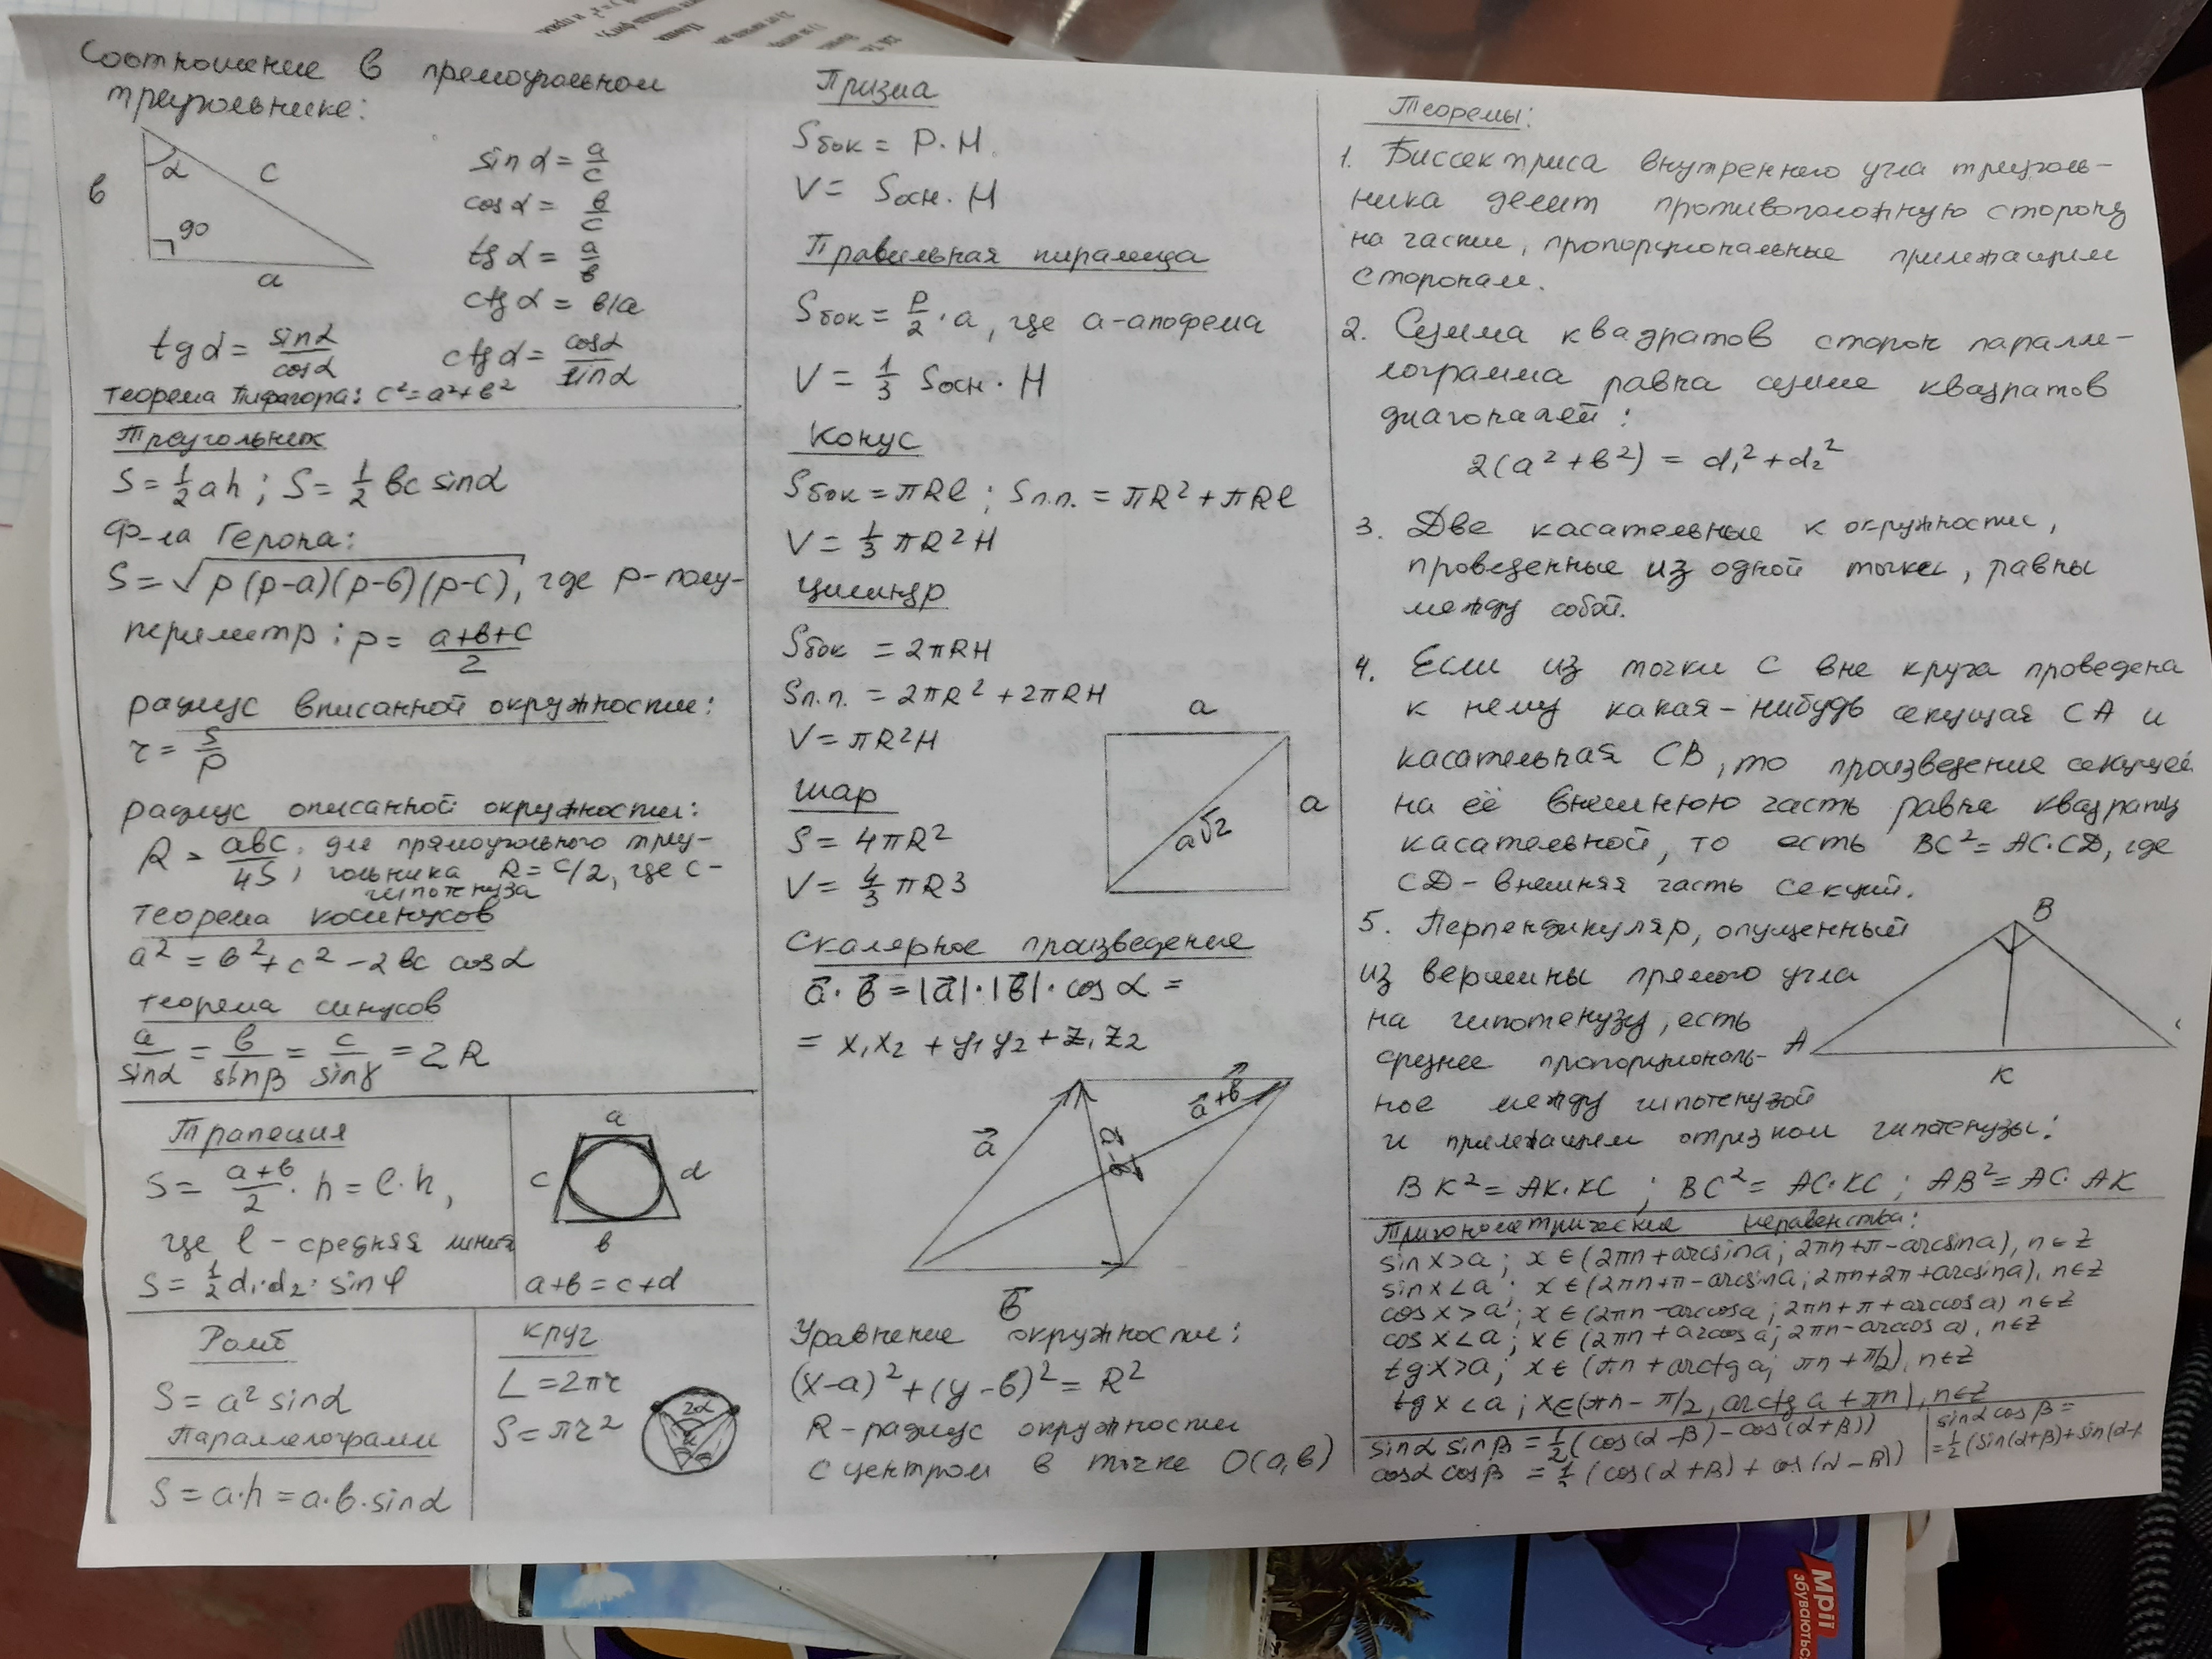 Соотношение в прямоугольном
треугольнике:
в
α
c
90
a
sin α = a/c
cos α = в/c
tg α = a/в
ctg α = в/a
tg α = sin α/cos α
ctg α = cos α/sin α
теорема Пифагора: c² = a² + в²
Треугольник
S = 1/2 ah ; S = 1/2 вc sin α
Ф-ла Герона:
S = √p(p-a)(p-в)(p-c), где p-полу-
периметр ; p = (a+в+c)/2
радиус вписанной окружности:
r = S/p
радиус описанной окружности:
R = abc/4S, для прямоугольного треу-
гольника R = c/2, где c -
гипотенуза
теорема косинусов
a² = в² + c² - 2вc cos α
теорема синусов
a/sin α = в/sin β = c/sin γ = 2R
Трапеция
S = (a+в)/2 · h = l·h,
где l - средняя линия
S = 1/2 d₁·d₂· sin φ
a
c
d
в
a+в = c+d
Ромб
S = a² sin α
Параллелограмм
S = a·h = a·в·sin α
круг
L = 2πr
S = πr²
2α
α
Призма
Sбок = P·H.
V = Sосн. H
Правильная пирамида
Sбок = P/2 · a, где a-апофема
V = 1/3 Sосн · H
Конус
Sбок = πRl ; Sп.п. = πR² + πRl
V = 1/3 πR²H
Цилиндр
Sбок = 2πRH
Sп.п. = 2πR² + 2πRH
V = πR²H
a
a
a√2
Шар
S = 4πR²
V = 4/3 πR3
Скалярное произведение
a⃗ · в⃗ = |a⃗|·|в⃗|· cos α =
= x₁x₂ + y₁y₂ + z₁z₂
a⃗
a⃗+в⃗
в
Уравнение окружности:
(x-a)² + (y-в)² = R²
R - радиус окружности
с центром в точке O(a,в)
Теоремы:
1. Биссектриса внутреннего угла треуголь-
ника делит противоположную сторону
на части, пропорциональные прилежащим
сторонам.
2. Сумма квадратов сторон паралле-
лограмма равна сумме квадратов
диагоналей:
2(a² + в²) = d₁² + d₂²
3. Две касательные к окружности,
проведенные из одной точки, равны
между собой.
4. Если из точки C вне круга проведена
к нему какая-нибудь секущая CA и
касательная CB, то произведение секущей
на её внешнюю часть равна квадрату
касательной, то есть BC² = AC·CD, где
CD - внешняя часть секущ.
5. Перпендикуляр, опущенный
из вершины прямого угла
на гипотенузу, есть
среднее пропорциональ-
ное между гипотенузой
и прилежащим отрезком гипотенузы:
B
A
K
BK² = AK·KC ; BC² = AC·KC ; AB² = AC·AK
Тригонометрические неравенства:
sin x > a ; x ∈ (2πn + arcsin a ; 2πn + π - arcsin a), n ∈ Z
sin x < a ; x ∈ (2πn + π - arcsin a ; 2πn + 2π + arcsin a), n ∈ Z
cos x > a ; x ∈ (2πn - arccos a ; 2πn + π + arccos a) n ∈ Z
cos x < a ; x ∈ (2πn + arccos a ; 2πn - arccos a), n ∈ Z
tg x > a ; x ∈ (πn + arctg a ; πn + π/2), n ∈ Z
tg x < a ; x ∈ (πn - π/2, arctg a + πn), n ∈ Z
sin α sin β = 1/2 (cos(α-β) - cos(α+β))
cos α cos β = 1/2 (cos(α+β) + cos(α-β))
sin α cos β =
= 1/2 (sin(α+β) + sin(α-
Мрії
збуваються